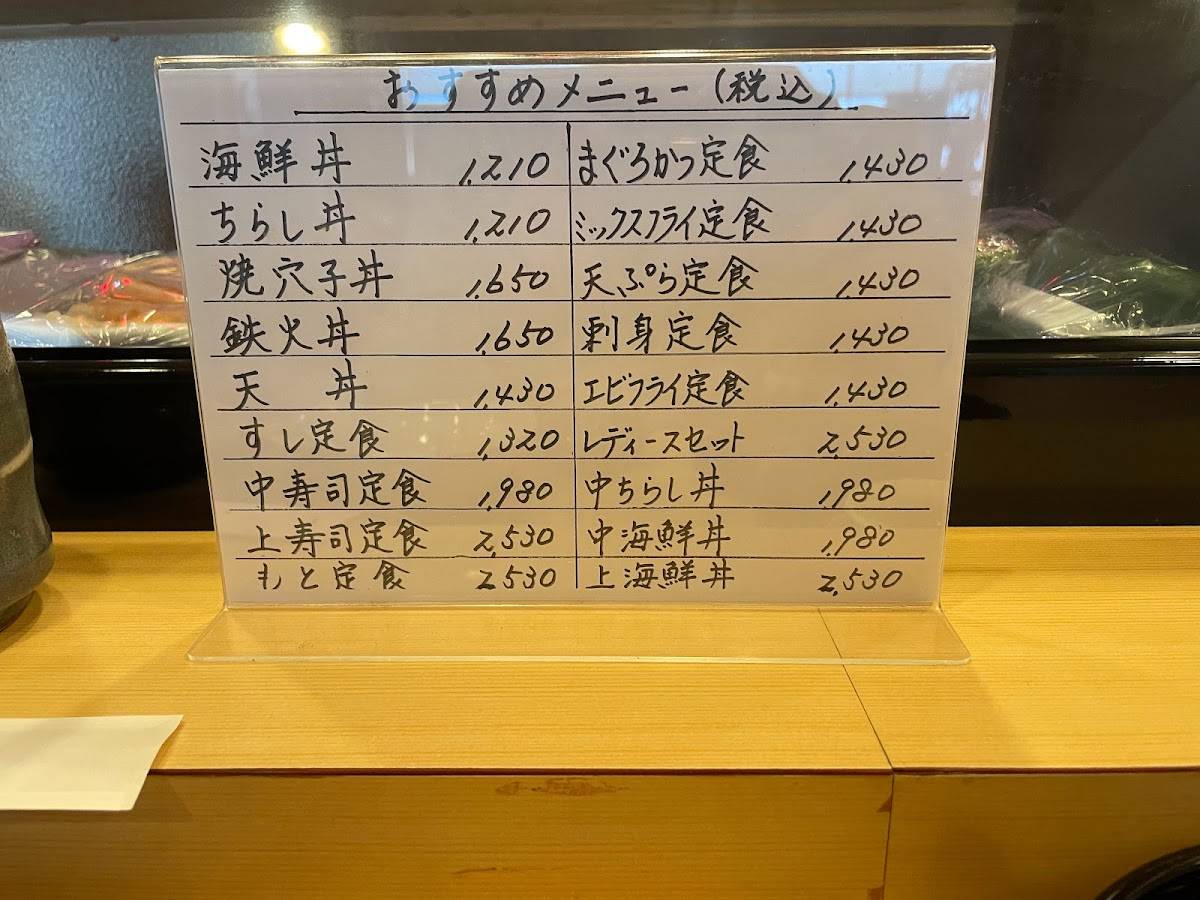 おすすめメニュー(税込)
海鮮丼 1,210
ちらし丼 1,210
焼穴子丼 1,650
鉄火丼 1,650
天 丼 1,430
すし定食 1,320
中寿司定食 1,980
上寿司定食 2,530
もと定食 2,530
まぐろかつ定食 1,430
ミックスフライ定食 1,430
天ぷら定食 1,430
刺身定食 1,430
エビフライ定食 1,430
レディースセット 2,530
中ちらし丼 1,980
中海鮮丼 1,980
上海鮮丼 2,530